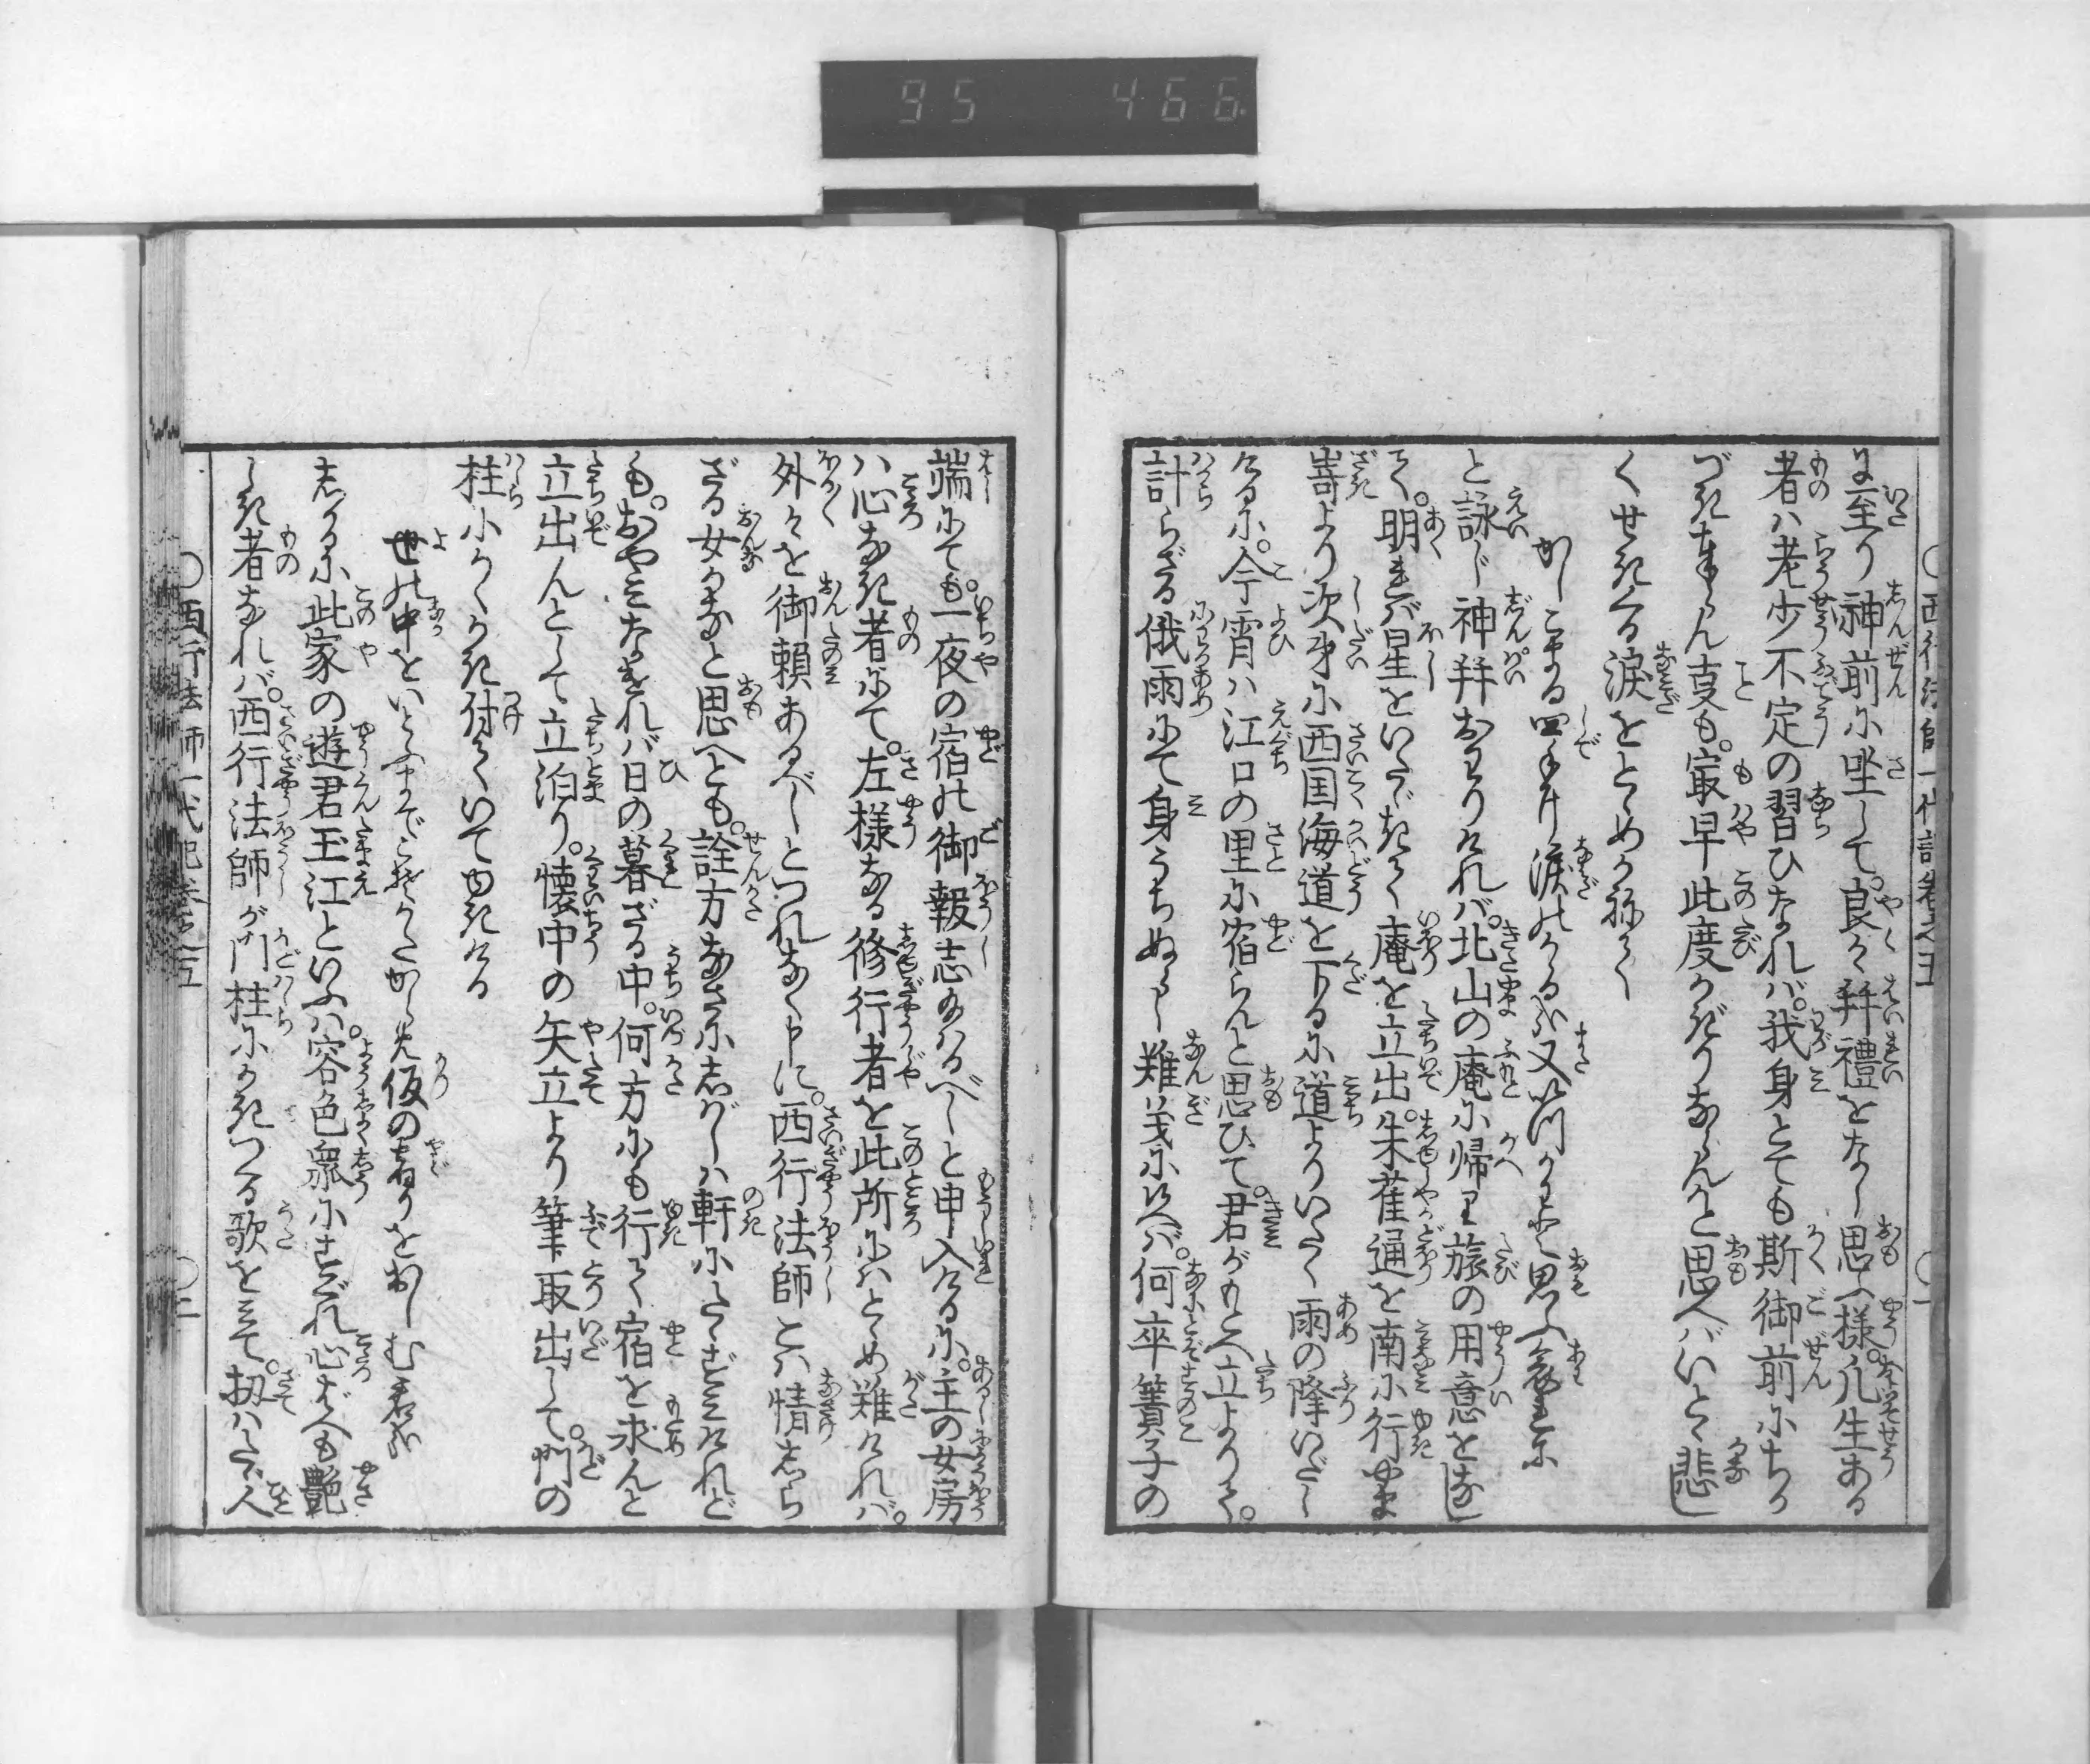 95 466
西行法師一代記巻之五 一
に至り神前に坐して。良々拝禮をなし思ふ様。凡生ある
者ハ老少不定の習ひなれバ。我身とても斯御前にちか
づき奉らん事も。寂早此度かぎりならんと思へバいとゞ悲し
くせきくる涙をとゞめかねて
かしこまる四手に涙のかゝる哉又いつかはと思ふ哀に
と詠じ神拝おわりけれバ。北山の庵に帰り旅の用意をなし
て。明れバ星をいたゞきて庵を立出。朱雀通を南に行山
嵜より次第に西国海道を下るに道よりいたく雨の降いだし
けるに。今宵ハ江口の里に宿らんと思ひて。君がもとへ立よりて。
計らざる俄雨にて身うちぬらし難義に候へバ。何卒簀子の
端にても。一夜の宿の御報志給はるべしと申入けるに。主の女房
ハ心なき者にて。左様なる修行者を此所にハとゞめ難けれバ。
外々を御頼あるべしとつれなく申に。西行法師こハ情しら
ざる女かなと思へども。詮方なさにしばしハ軒にたゝずみけれど
も。おやみたまざれバ日の暮ざる中。何方にも行て宿を求んと
立出んとして立泊り。懐中の矢立より筆取出して。門の
柱にかくかき付ていでゆきける
世の中をいとふまでこそかたからめ仮の宿りをおしむ君哉
しかるに此家の遊君玉江といふハ。容色衆にすぐれ心ざへも艶
しき者なれバ。西行法師が門柱にかきつる歌をみて。扨ハたゞ人
西行法師一代記巻之五 二